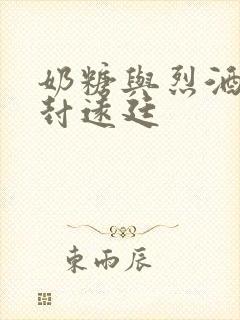 奶糖與烈酒
封遠廷
東雨辰